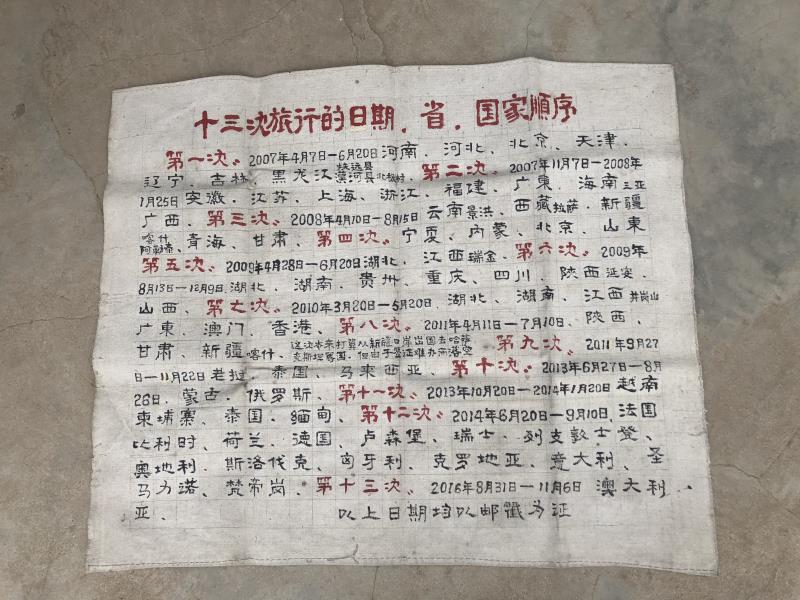 十三次旅行的日期、省、国家順序
第一次。2007年4月7日—6月20日河南、河北、北京、天津、
辽宁、吉林、黑龙江漠河县北极村、第二次。2007年11月7日—2008年
1月25日安徽、江苏、上海、浙江、福建、广東、海南三亚
广西、第三次。2008年4月10日—8月15日云南景洪、西藏拉萨、新疆
喀什阿勒泰、青海、甘肃、第四次。宁夏、内蒙、北京、山東
第五次。2009年4月28日—6月20日湖北、江西瑞金、第六次。2009年
8月13日—12月9日、湖北、湖南、贵州、重庆、四川、陕西延安、
山西、第七次。2010年3月20日—5月20日 湖北、湖南、江西井岗山
广東、澳门、香港、第八次。2011年4月11日—7月10日、陕西、
甘肃、新疆喀什、这次本来打算从新疆口岸出国去哈萨克斯坦等国,但由于签证难办而落空 第九次。2011年9月27
日—11月22日老挝、泰国、马来西亚、第十次。2013年6月27日—8月
26日、蒙古、俄罗斯、第十一次。2013年10月20日—2014年1月20日越南
柬埔寨、泰国、缅甸、第十二次。2014年6月20日—9月10日、法国
比利时、荷兰、德国、卢森堡、瑞士、列支敦士登、
奥地利、斯洛伐克、匈牙利、克罗地亚、意大利、圣
马力诺、梵帝岗、第十三次。2016年8月31日—11月6日 澳大利
亚、 以上日期均以邮戳为证